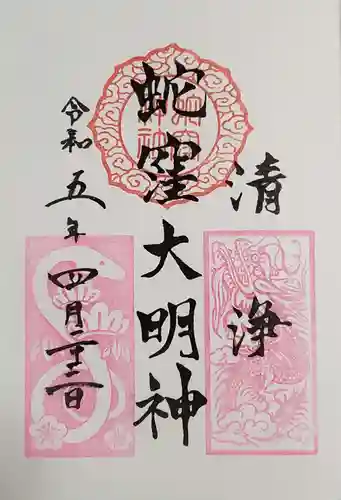 清浄
蛇窪大明神
令和五年四月二十二日